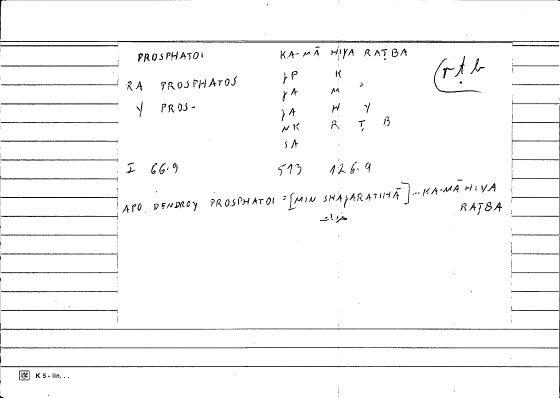 PROSPHATOI KA-MĀ HIYA RAṬBA
RA PROSPHATOS ʒP K rṭb
Y PROS- ʒA M
ʒA H Y
NK R Ṭ B
SA
I 66.9 513 126.9
APO DENDROY PROSPHATOI = [MIN SHAʒARATIHĀ] ... KA-MĀ HIYA
RAṬBA
K5-